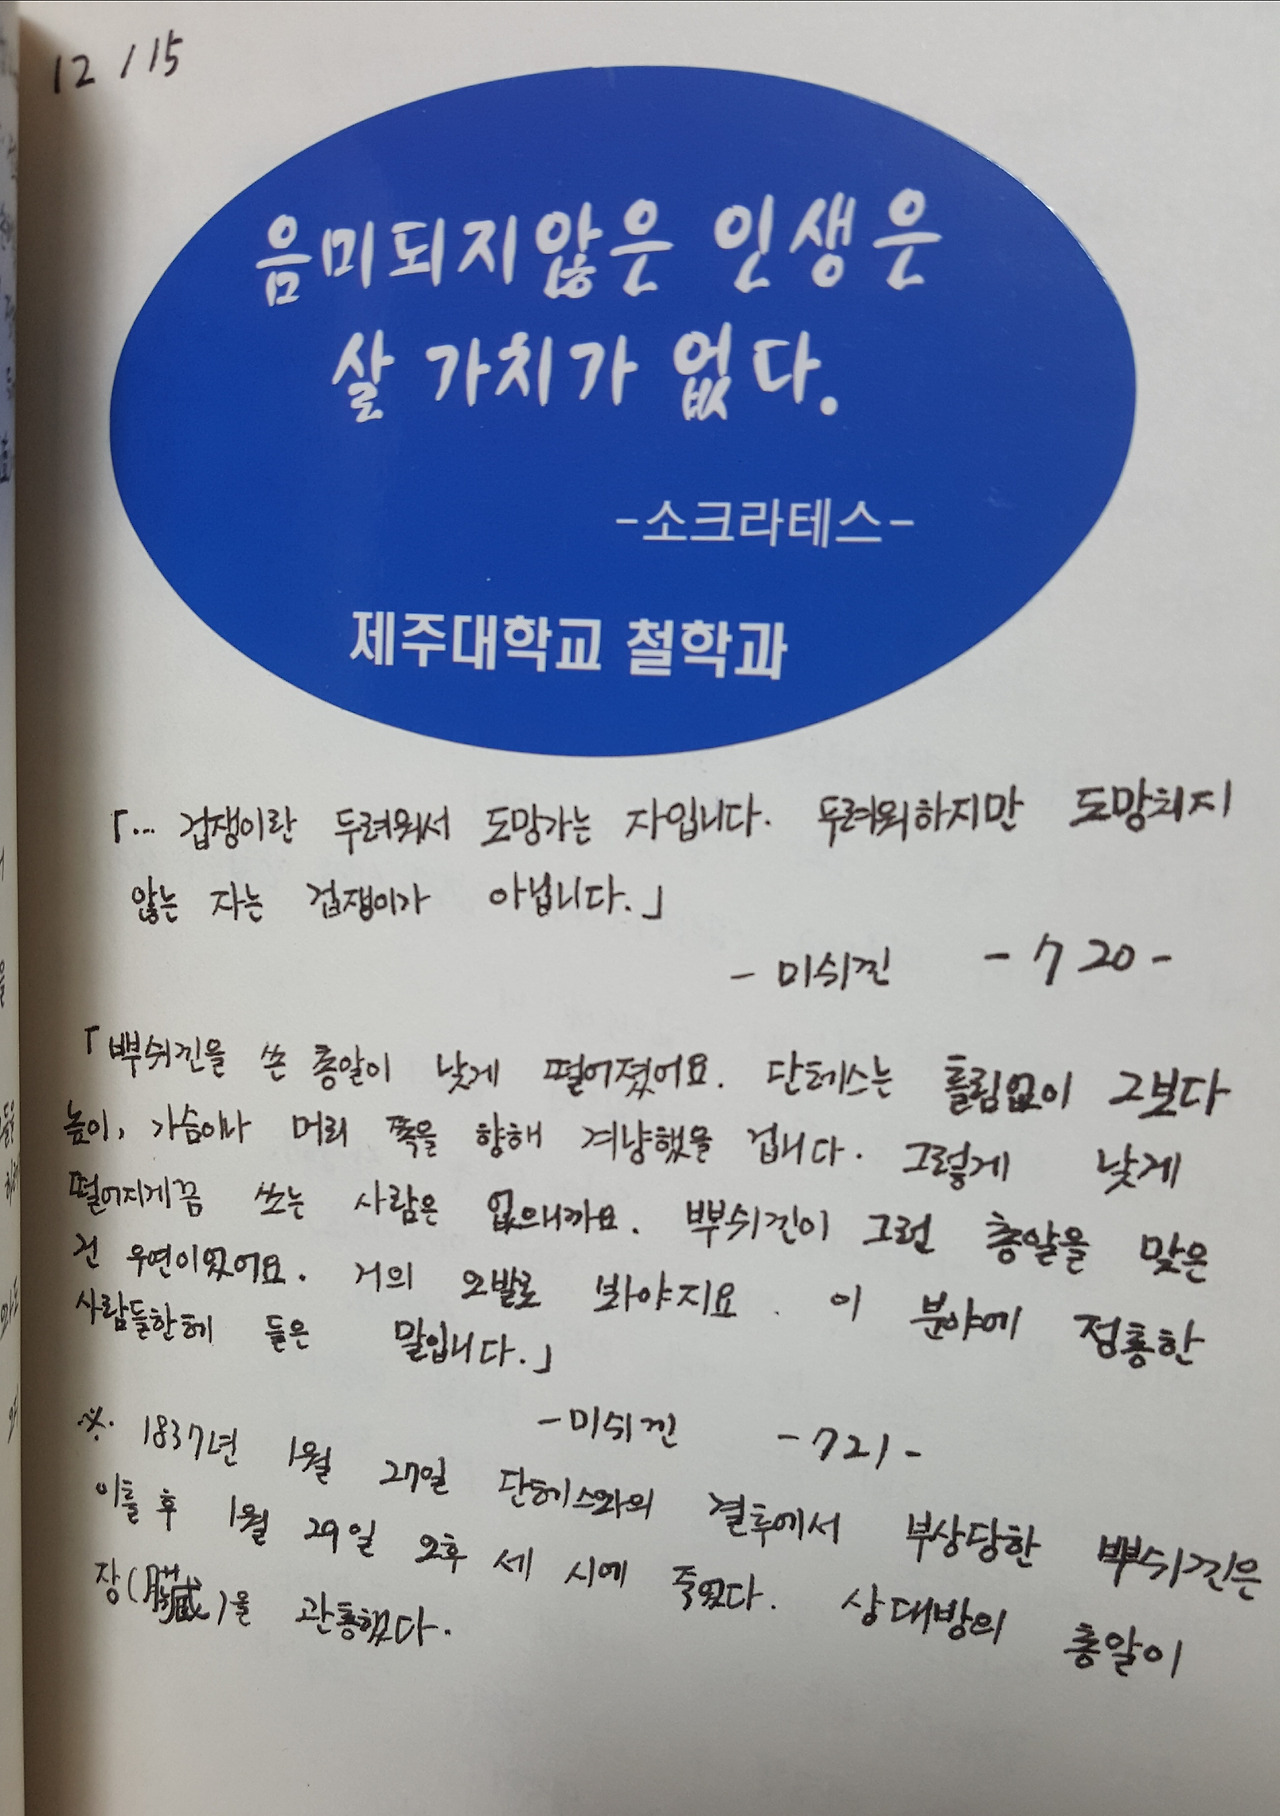 12 / 15
음미되지않은 인생은
살 가치가 없다.
-소크라테스-
제주대학교 철학과
「... 겁쟁이란 두려워서 도망가는 자입니다. 두려워하지만 도망치지
않는 자는 겁쟁이가 아닙니다.」
- 미쉬낀 - 720 -
「뿌쉬낀을 쏜 총알이 낮게 떨어졌어요. 단테스는 틀림없이 그보다
높이, 가슴이나 머리 쪽을 향해 겨냥했을 겁니다. 그렇게 낮게
떨어지게끔 쏘는 사람은 없으니까요. 뿌쉬낀이 그런 총알을 맞은
건 우연이었어요. 거의 오발로 봐야지요. 이 분야에 정통한
사람들한테 들은 말입니다.」
- 미쉬낀 - 721 -
※ 1837년 1월 27일 단테스와의 결투에서 부상당한 뿌쉬낀은
이틀 후 1월 29일 오후 세 시에 죽었다. 상대방의 총알이
장(臟)을 관통했다.